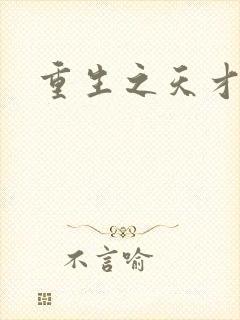 重生之天才
不言喻